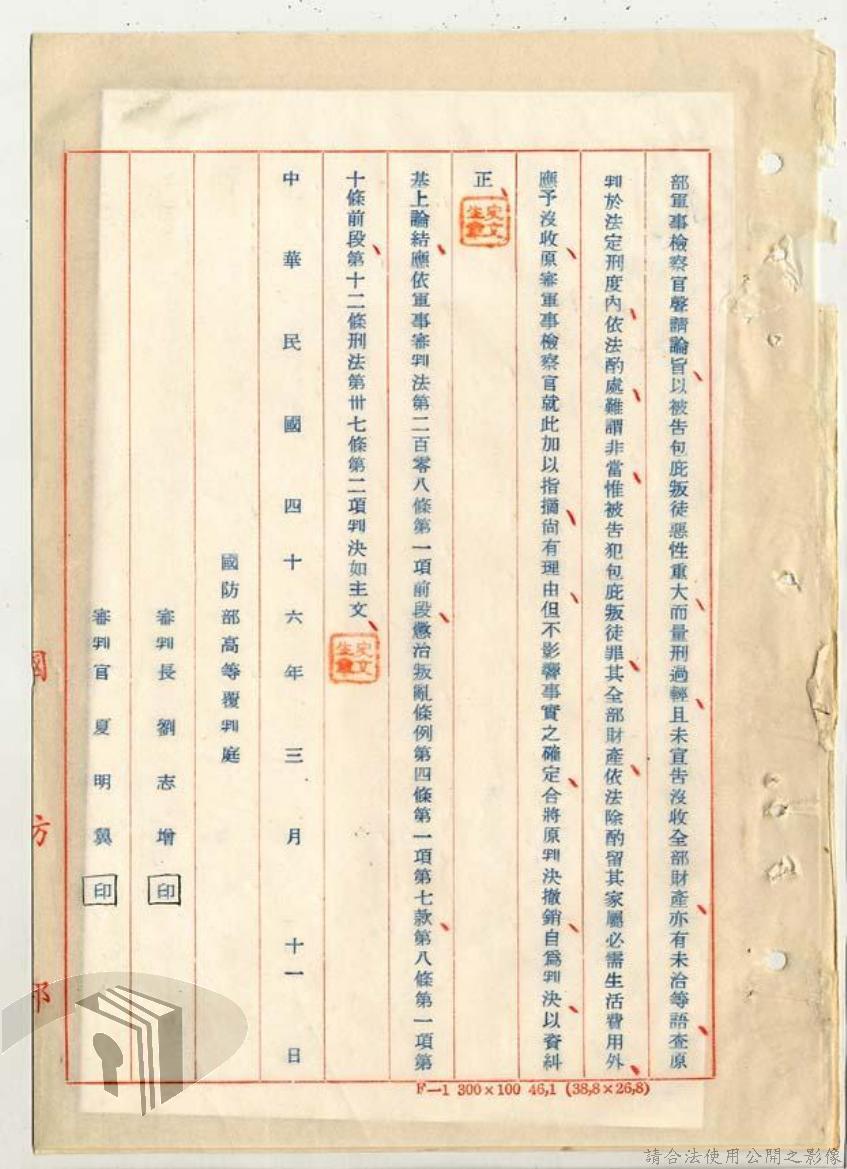 部軍事檢察官聲請論旨以被告包庇叛徒惡性重大而量刑過輕且未宣告沒收全部財產亦有未洽等語查原
判於法定刑度內依法酌處難謂非當惟被告犯包庇叛徒罪其全部財產依法除酌留其家屬必需生活費用外
應予沒收原審軍事檢察官就此加以指摘尚有理由但不影響事實之確定合將原判決撤銷自為判決以資糾
正
史文生章
基上論結應依軍事審判法第二百零八條第一項前段懲治叛亂條例第四條第一項第七款第八條第一項第
十條前段第十二條刑法第卅七條第二項判決如主文
史文生章
中華民國四十六年三月十一日
國防部高等覆判庭
審判長劉志增印
審判官夏明翼印
國防部
F—1 300×100 46,1 (38,8×26,8)
請合法使用公開之影像